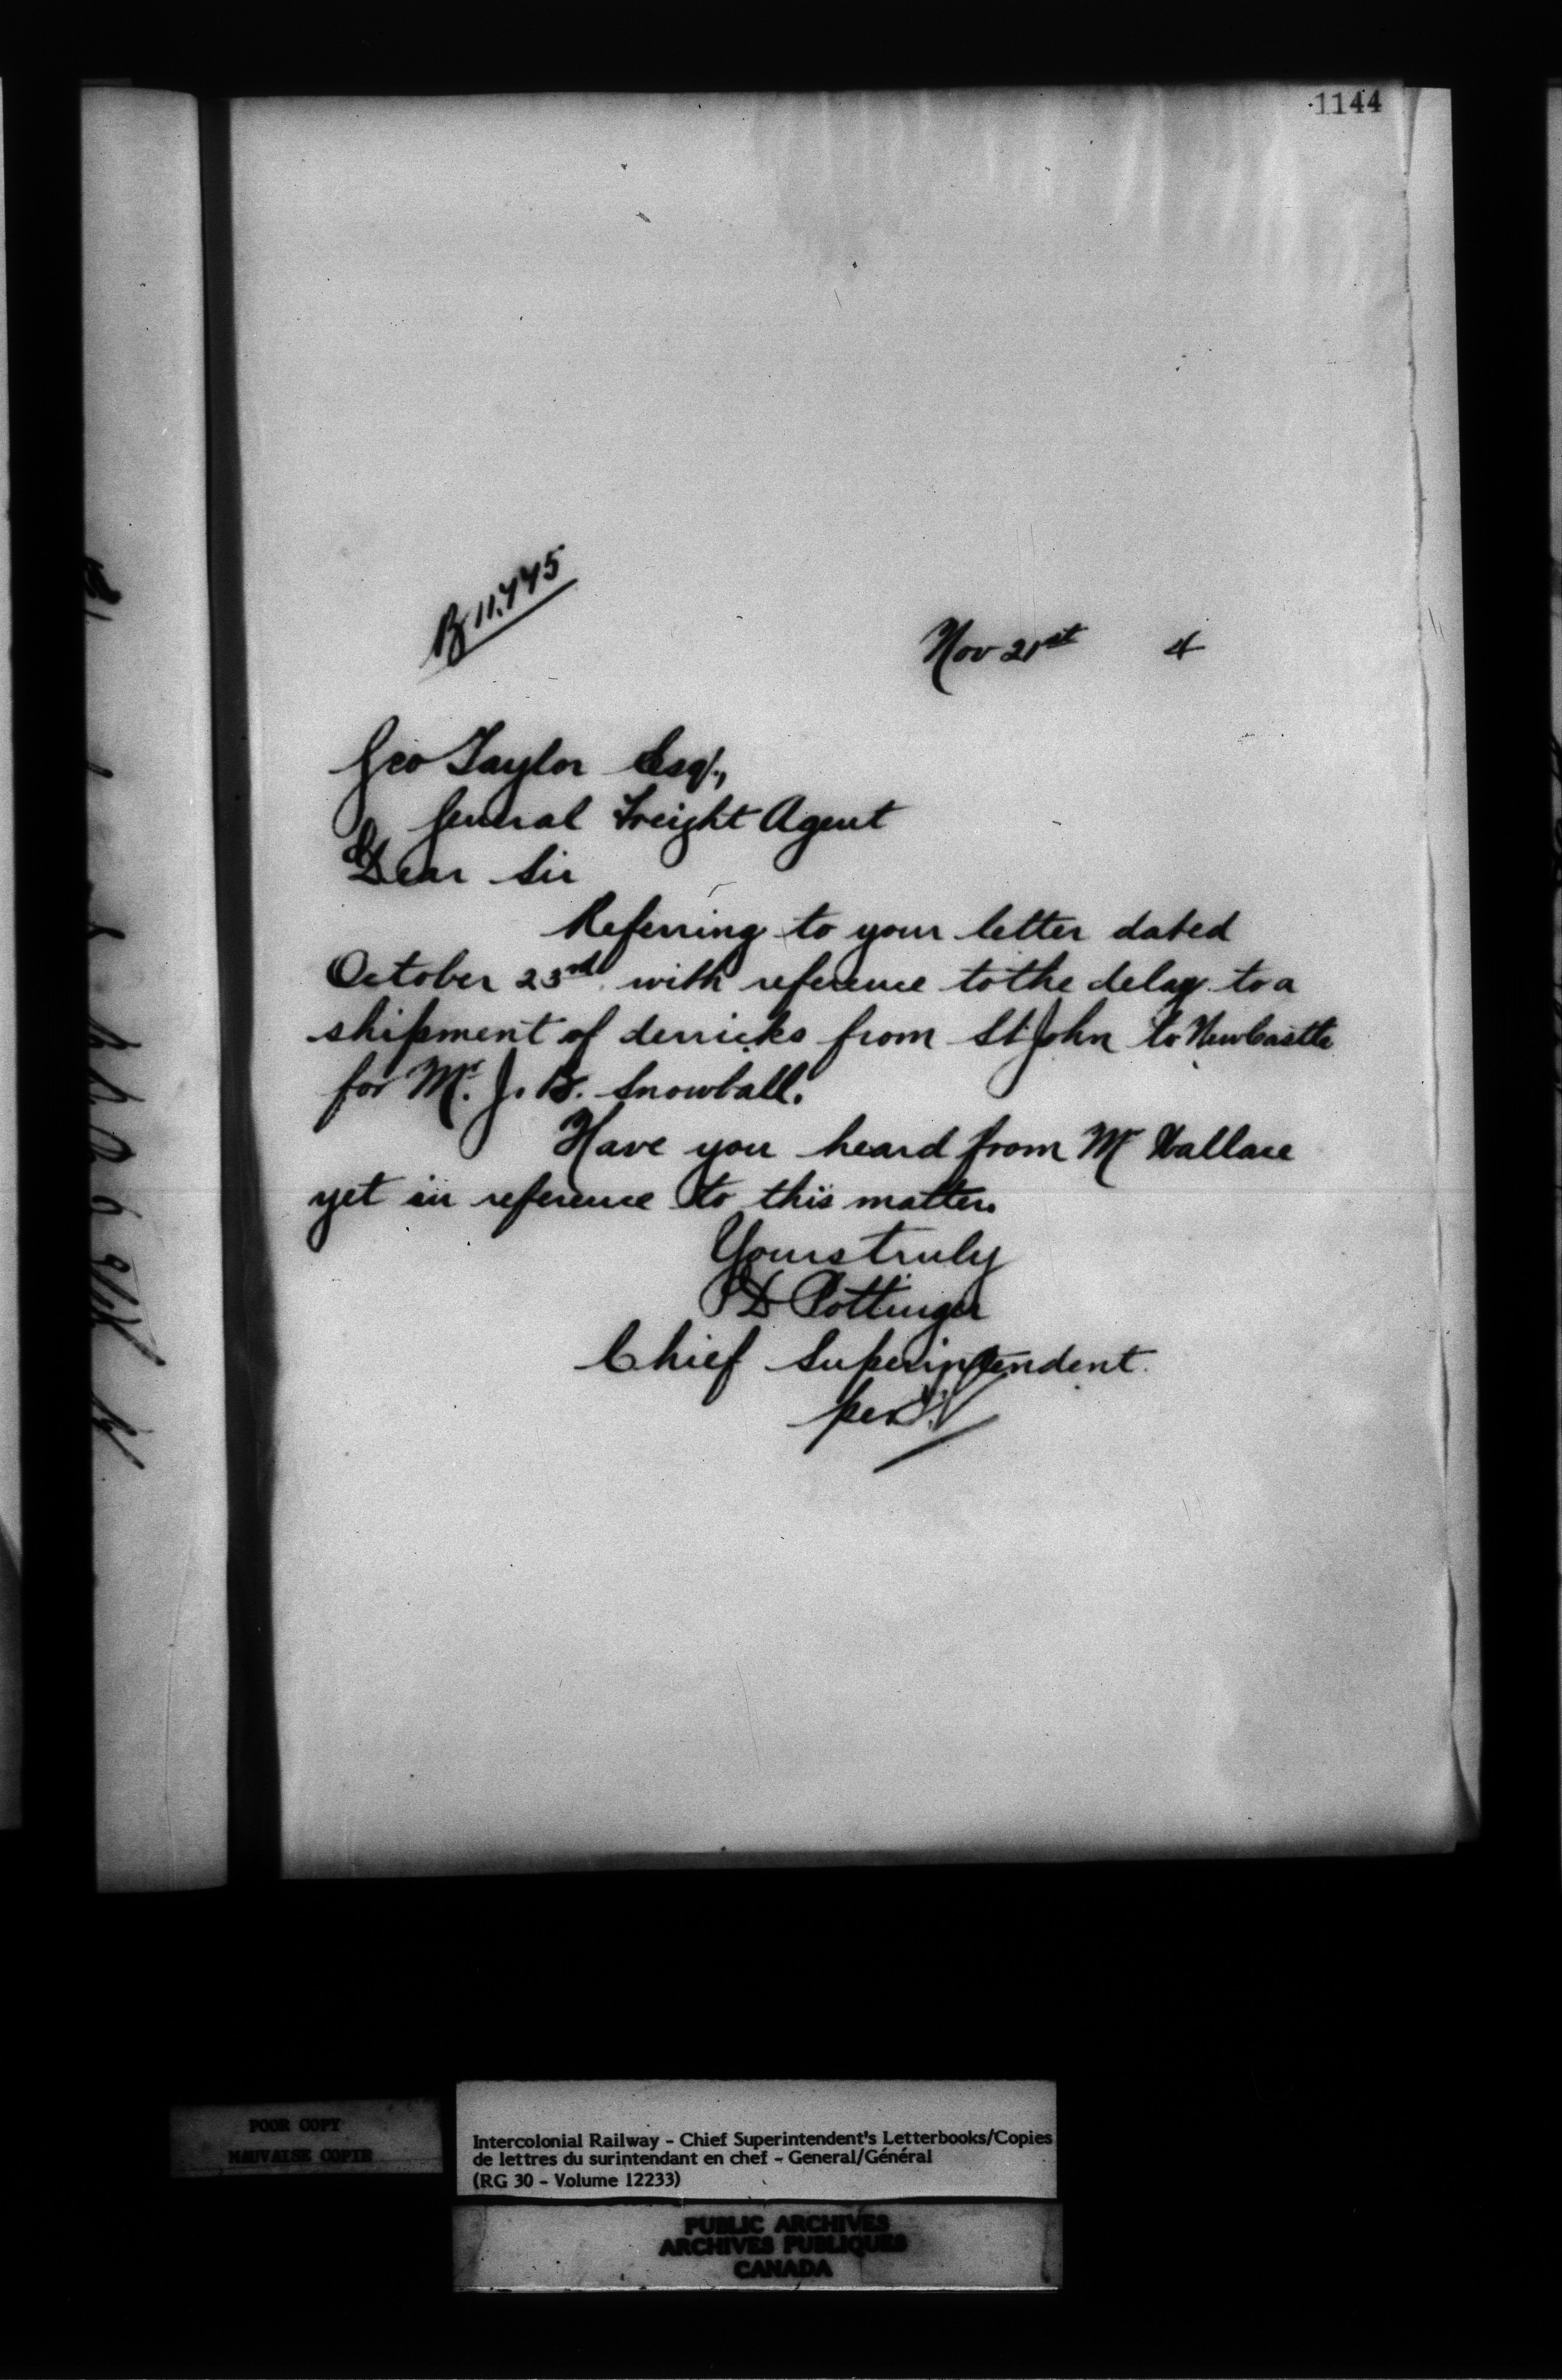 1144
B 11,445
Nov 21st 4
Geo Taylor Esq.,
General Freight Agent
Dear Sir
Referring to your letter dated
October 23rd with reference to the delay to a
shipment of derricks from St John to Newcastle
for Mr. J. B. Snowball.
Have you heard from Mr Wallace
yet in reference to this matter.
Yours truly
D Pottinger
Chief Superintendent
per
POOR COPY
MAUVAISE COPIE
Intercolonial Railway - Chief Superintendent's Letterbooks/Copies
de lettres du surintendant en chef - General/Général
(RG 30 - Volume 12233)
PUBLIC ARCHIVES
ARCHIVES PUBLIQUES
CANADA